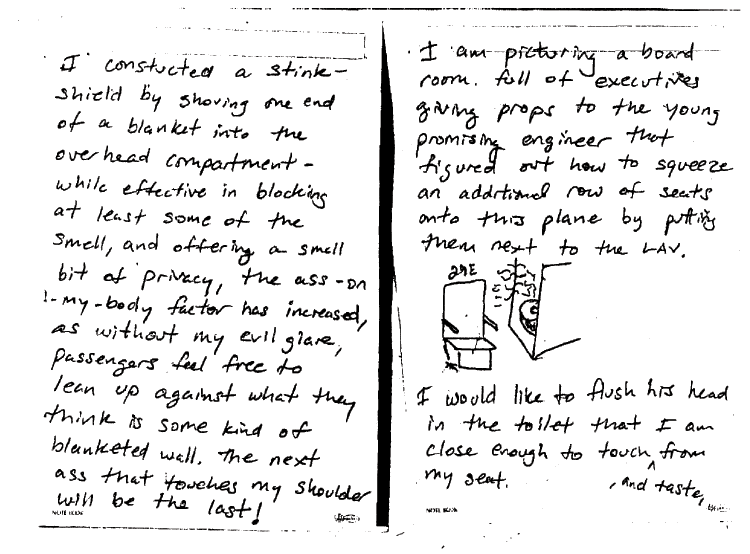 I constucted a stink-
shield by shoving one end
of a blanket into the
overhead compartment -
while effective in blocking
at least some of the
smell, and offering a small
bit of privacy, the ass-on
-my-body factor has increased,
as without my evil glare,
passengers feel free to
lean up against what they
think is some kind of
blanketed wall. The next
ass that touches my shoulder
will be the last!
NOTE BOOK
I am picturing a board
room. full of executives
giving props to the young
promising engineer that
figured out how to squeeze
an additional row of seats
onto this plane by putting
them next to the LAV.
29E
I would like to flush his head
in the toilet that I am
close enough to touch, and taste, from
my seat.
NOTE BOOK